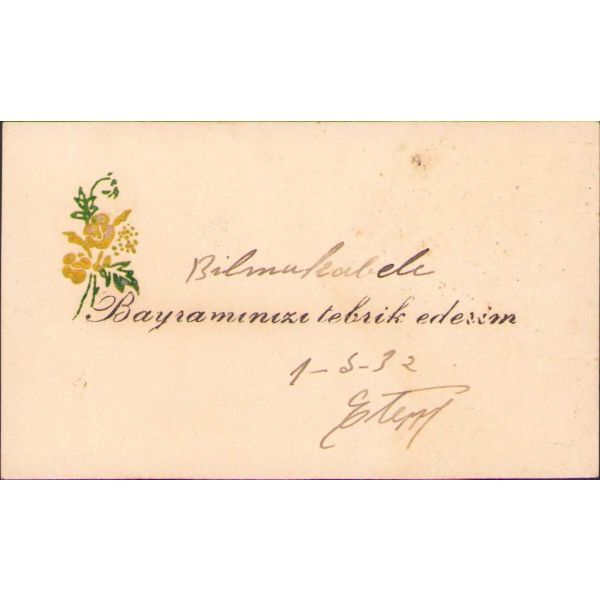 Bilmukabele
Bayramınızı tebrik ederim
1-5-32